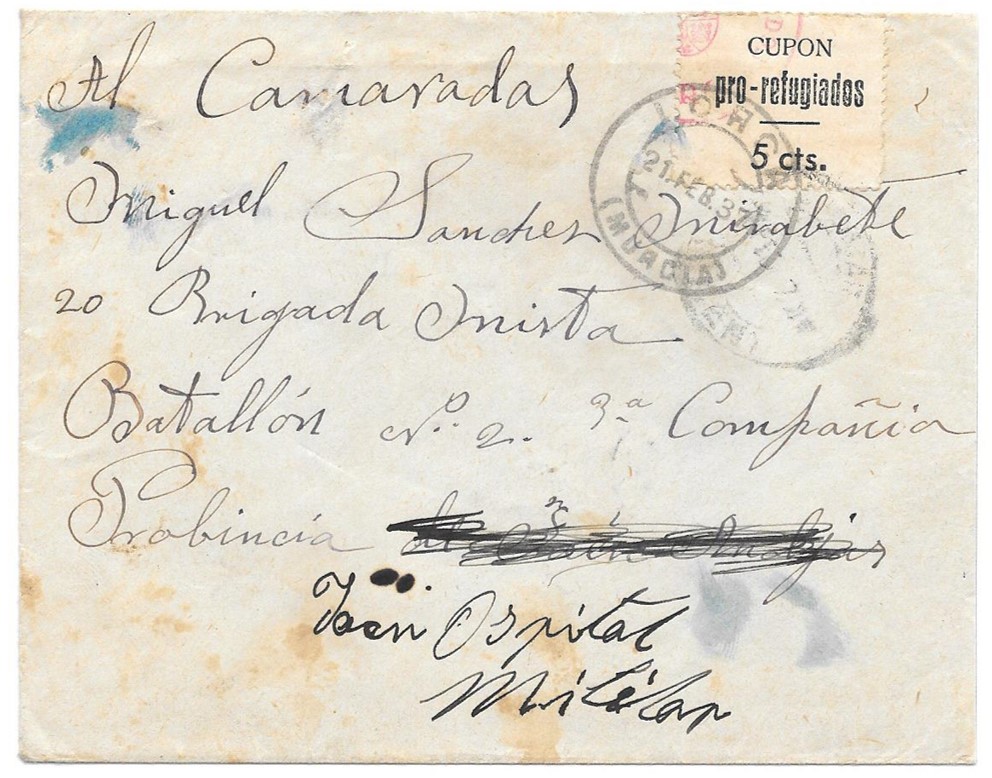 CUPON
pro-refugiados
5 cts.
LORCA
21.FEB.37
(MURCIA)
Al Camaradas
Miguel Sanchez Mirabete
20 Brigada Mista
Batallón Nº 2. 3ª Compañia
Probincia de Jaén Andujar
Jaen Ospital
Militar